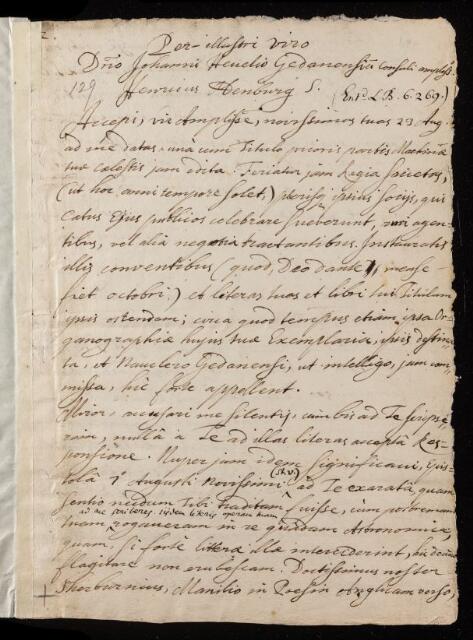 2.
Per-illustri viro
Dno Johanni Hevelio Gedanensiū Consuli ampliss.
129 Henricus Oldenburg S. (Ent. L.B. 6. 269.)
Accepi, vir Amplisse, novissimas tuas 23 Aug.
ad me datas, unà cum Titulo prioris partis Machinæ
tuæ cœlestis jam edita. Feriatur jam Regia Societas,
(ut hoc anni tempore solet,) plerisq ipsius socijs, qui
cœtus Ejus publicos celebrare sueverunt, ruri agen-
tibus, vel alia negotia tractantibus. Instauratis
illis conventibus (quod, Deo dante, mense
fiet octobri,) et literas tuas et libri tui Titulum
ipsis ostendam; circa quod tempus etiam ipsa Or-
ganographiæ hujus tuæ Exemplaria, ipsis destina-
ta, et Nauclero Gedanensi, ut intelligo, jam com-
missa, hîc forte appellent.
Miror, accusari me silentij, cum bis ad Te scripse-
rim, nullâ à Te ad illas literas acceptâ Res-
ponsione. Nuper jam idem significavi, Epis-
tolâ 1° Augusti novissimi (st. v.) ad Te exaratâ, quam
sentio necdum Tibi traditam fuisse, cum postremam
ad me scriberes. iisdem literis operam tuam
tuam rogaveram in re quadam Astronomica,
quam, si forte literæ illæ interciderint, hîc denuò
flagitare non erubescam. Doctissimus noster
Sherburnius, Manilio in Poesin Anglicam verso,